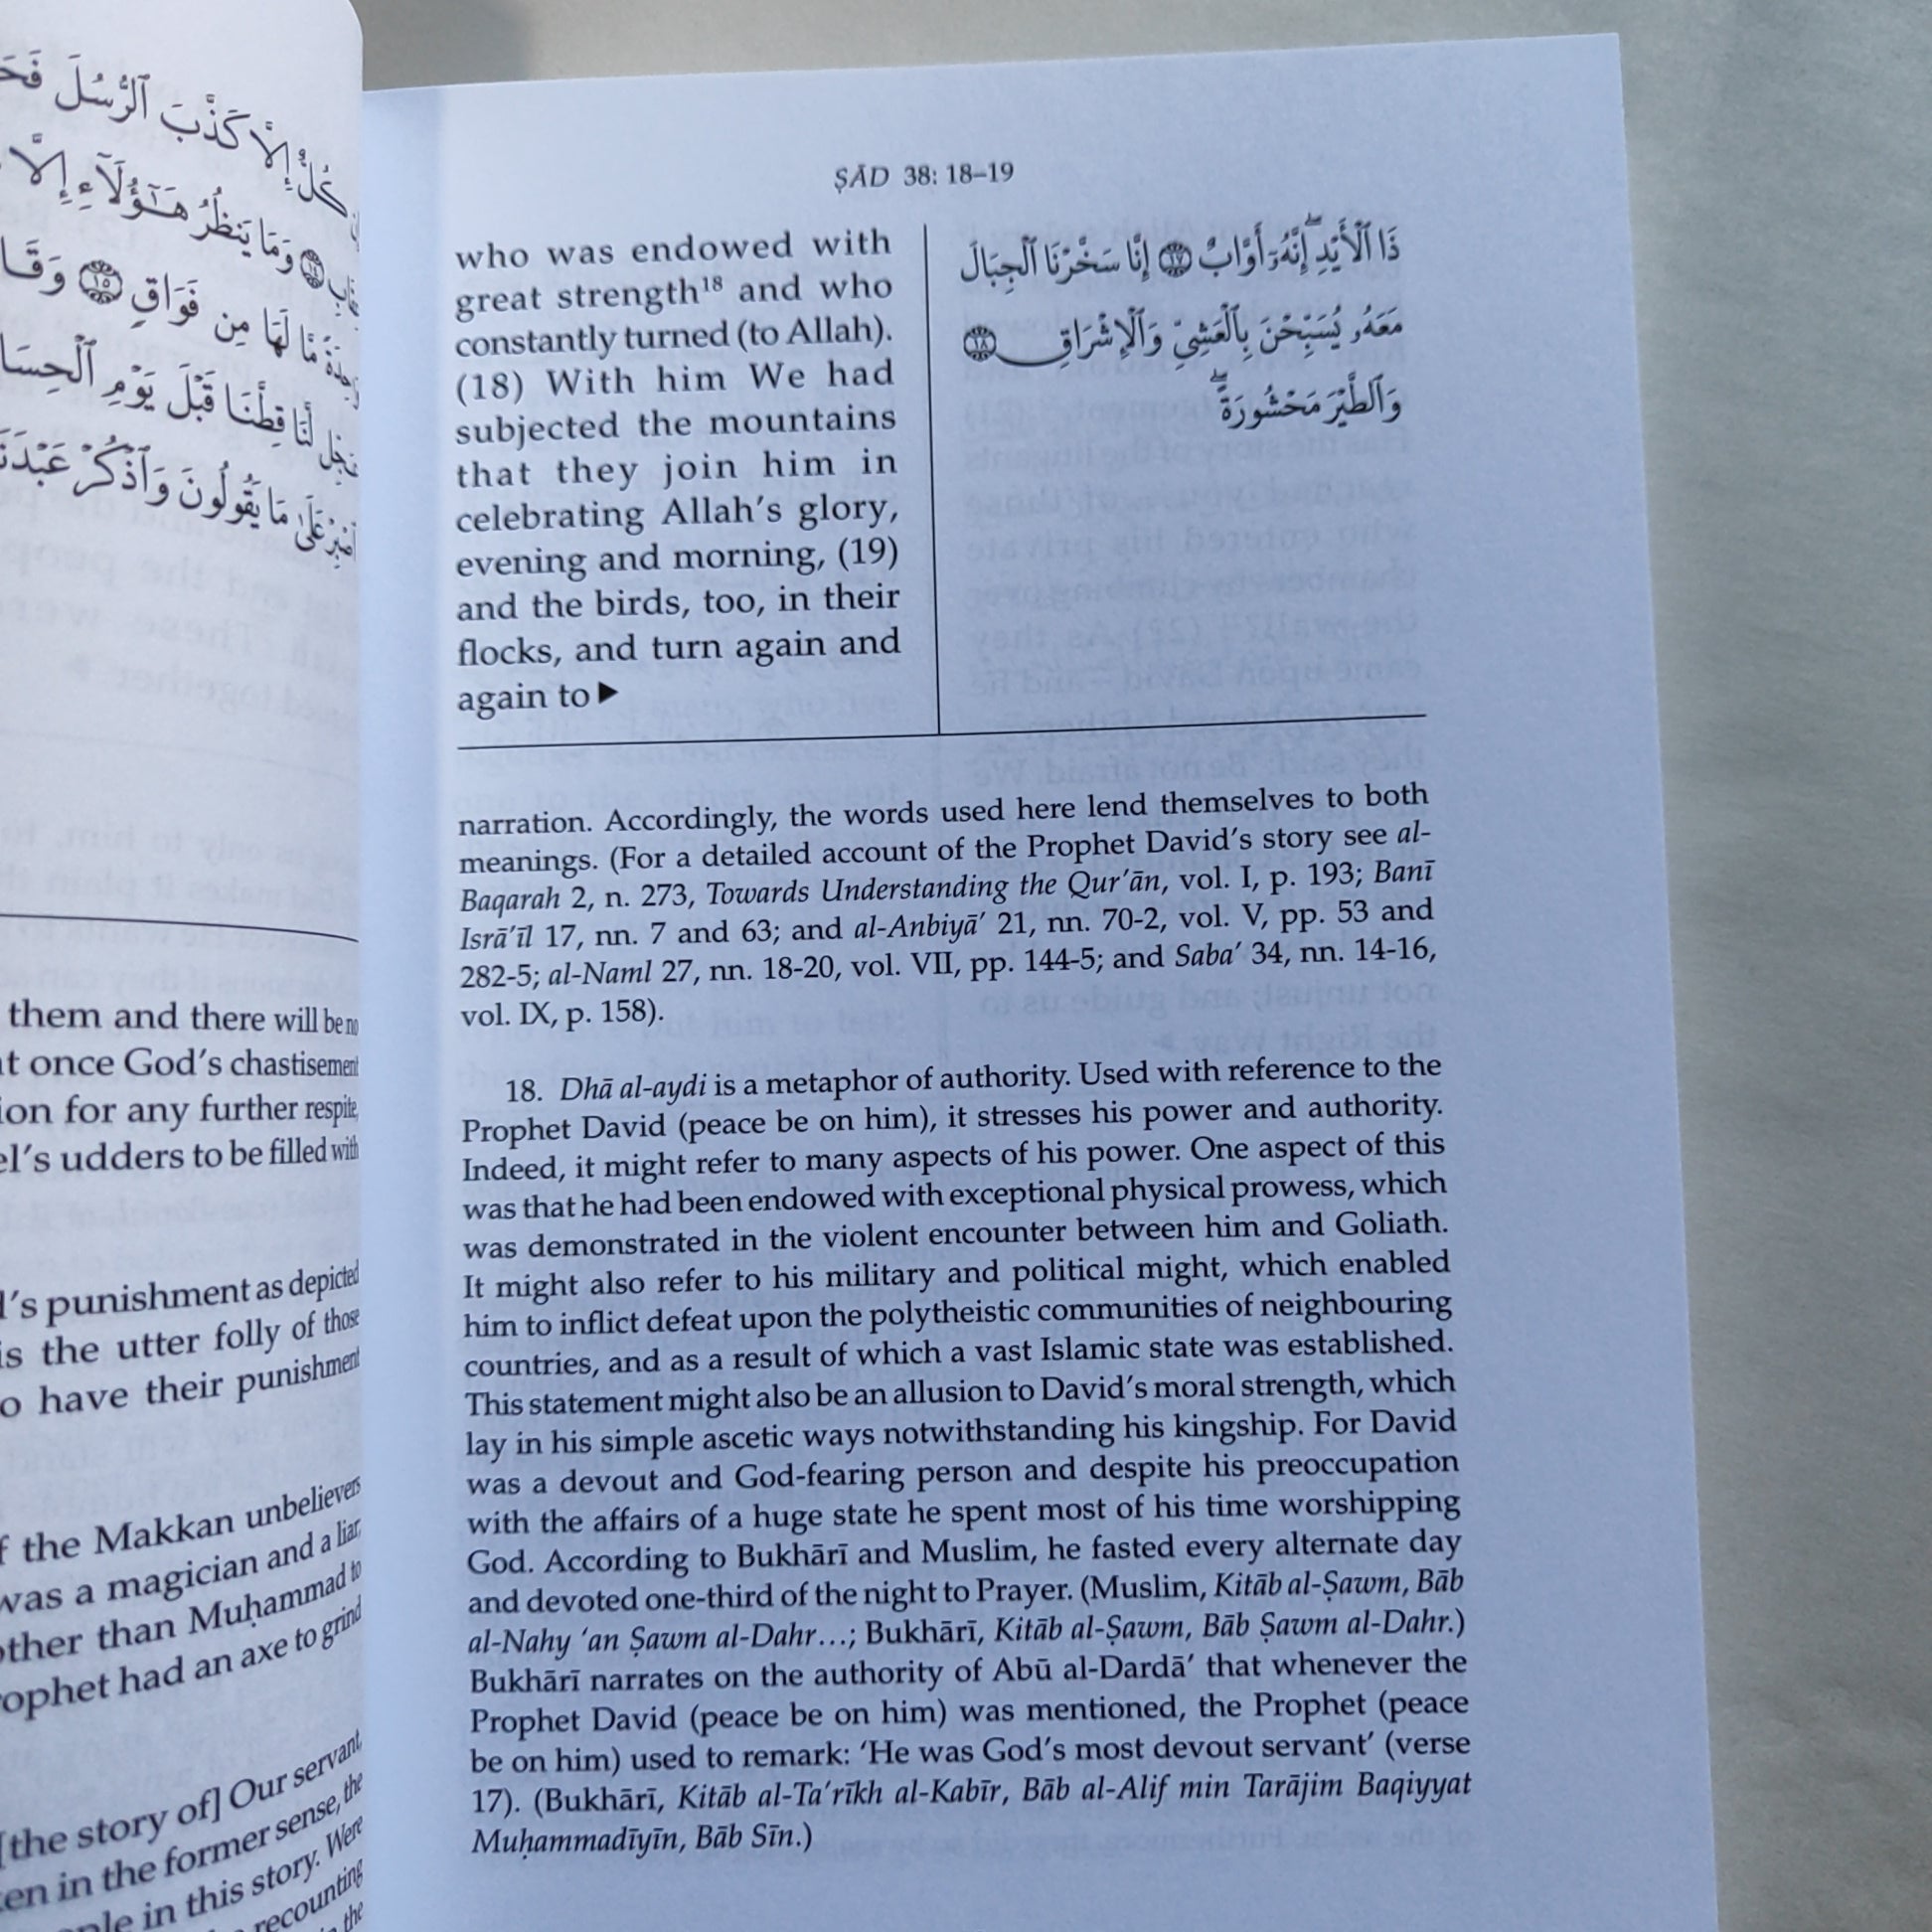 كُلٌّ إِلَّا كَذَّبَ ٱلرُّسُلَ
وَمَا يَنظُرُ هَـٰٓؤُلَآءِ إِلَّا
مَّا لَهَا مِن فَوَاقٍ ١٥
لَّنَا قِطَّنَا قَبْلَ يَوْمِ
عَلَىٰ مَا يَقُولُونَ وَٱذْكُرْ
them and there will be no
at once God's chastisement
for any further respite,
udders to be filled with
punishment as depicted
is the utter folly of those
have their punishment
the Makkan unbelievers
was a magician and a liar,
other than Muḥammad to
had an axe to grind
[the story of] Our servant
in the former sense, the
in this story. Were
recounting
the
ṢĀD 38: 18–19
who was endowed with
great strength¹⁸ and who
constantly turned (to Allah).
(18) With him We had
subjected the mountains
that they join him in
celebrating Allah's glory,
evening and morning, (19)
and the birds, too, in their
flocks, and turn again and
again to ▶
ذَا ٱلْأَيْدِ ۖ إِنَّهُۥٓ أَوَّابٌ ١٧ إِنَّا سَخَّرْنَا ٱلْجِبَالَ
مَعَهُۥ يُسَبِّحْنَ بِٱلْعَشِىِّ وَٱلْإِشْرَاقِ ١٨
وَٱلطَّيْرَ مَحْشُورَةً ۖ
narration. Accordingly, the words used here lend themselves to both
meanings. (For a detailed account of the Prophet David's story see al-
Baqarah 2, n. 273, Towards Understanding the Qur'ān, vol. I, p. 193; Banī
Isrā'īl 17, nn. 7 and 63; and al-Anbiyā' 21, nn. 70-2, vol. V, pp. 53 and
282-5; al-Naml 27, nn. 18-20, vol. VII, pp. 144-5; and Saba' 34, nn. 14-16,
vol. IX, p. 158).
18. Dhā al-aydi is a metaphor of authority. Used with reference to the
Prophet David (peace be on him), it stresses his power and authority.
Indeed, it might refer to many aspects of his power. One aspect of this
was that he had been endowed with exceptional physical prowess, which
was demonstrated in the violent encounter between him and Goliath.
It might also refer to his military and political might, which enabled
him to inflict defeat upon the polytheistic communities of neighbouring
countries, and as a result of which a vast Islamic state was established.
This statement might also be an allusion to David's moral strength, which
lay in his simple ascetic ways notwithstanding his kingship. For David
was a devout and God-fearing person and despite his preoccupation
with the affairs of a huge state he spent most of his time worshipping
God. According to Bukhārī and Muslim, he fasted every alternate day
and devoted one-third of the night to Prayer. (Muslim, Kitāb al-Ṣawm, Bāb
al-Nahy 'an Ṣawm al-Dahr...; Bukhārī, Kitāb al-Ṣawm, Bāb Ṣawm al-Dahr.)
Bukhārī narrates on the authority of Abū al-Dardā' that whenever the
Prophet David (peace be on him) was mentioned, the Prophet (peace
be on him) used to remark: 'He was God's most devout servant' (verse
17). (Bukhārī, Kitāb al-Ta'rīkh al-Kabīr, Bāb al-Alif min Tarājim Baqiyyat
Muḥammadīyīn, Bāb Sīn.)